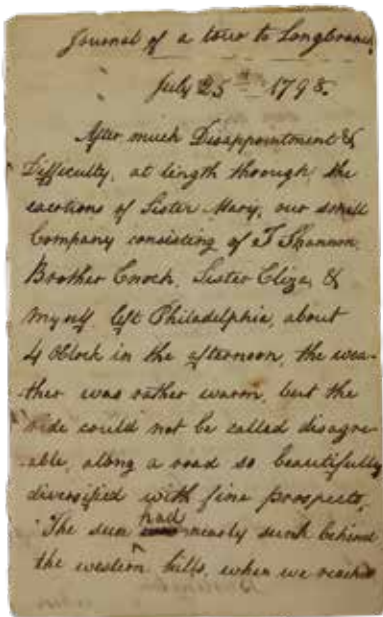 Journal of a tour to Longbranch
July 25th 1798.
After much Disappointment &
Difficulty, at length through the
exertions of Sister Mary, our small
Company consisting of T Shannon,
Brother Enoch, Sister Eliza, &
myself left Philadelphia, about
4 OClock in the afternoon, the wea-
ther was rather warm, but the
ride could not be called disagre-
able, along a road so beautifully
diversified with fine prospects,
had
The sun nearly sunk behind
the western hills, when we reached